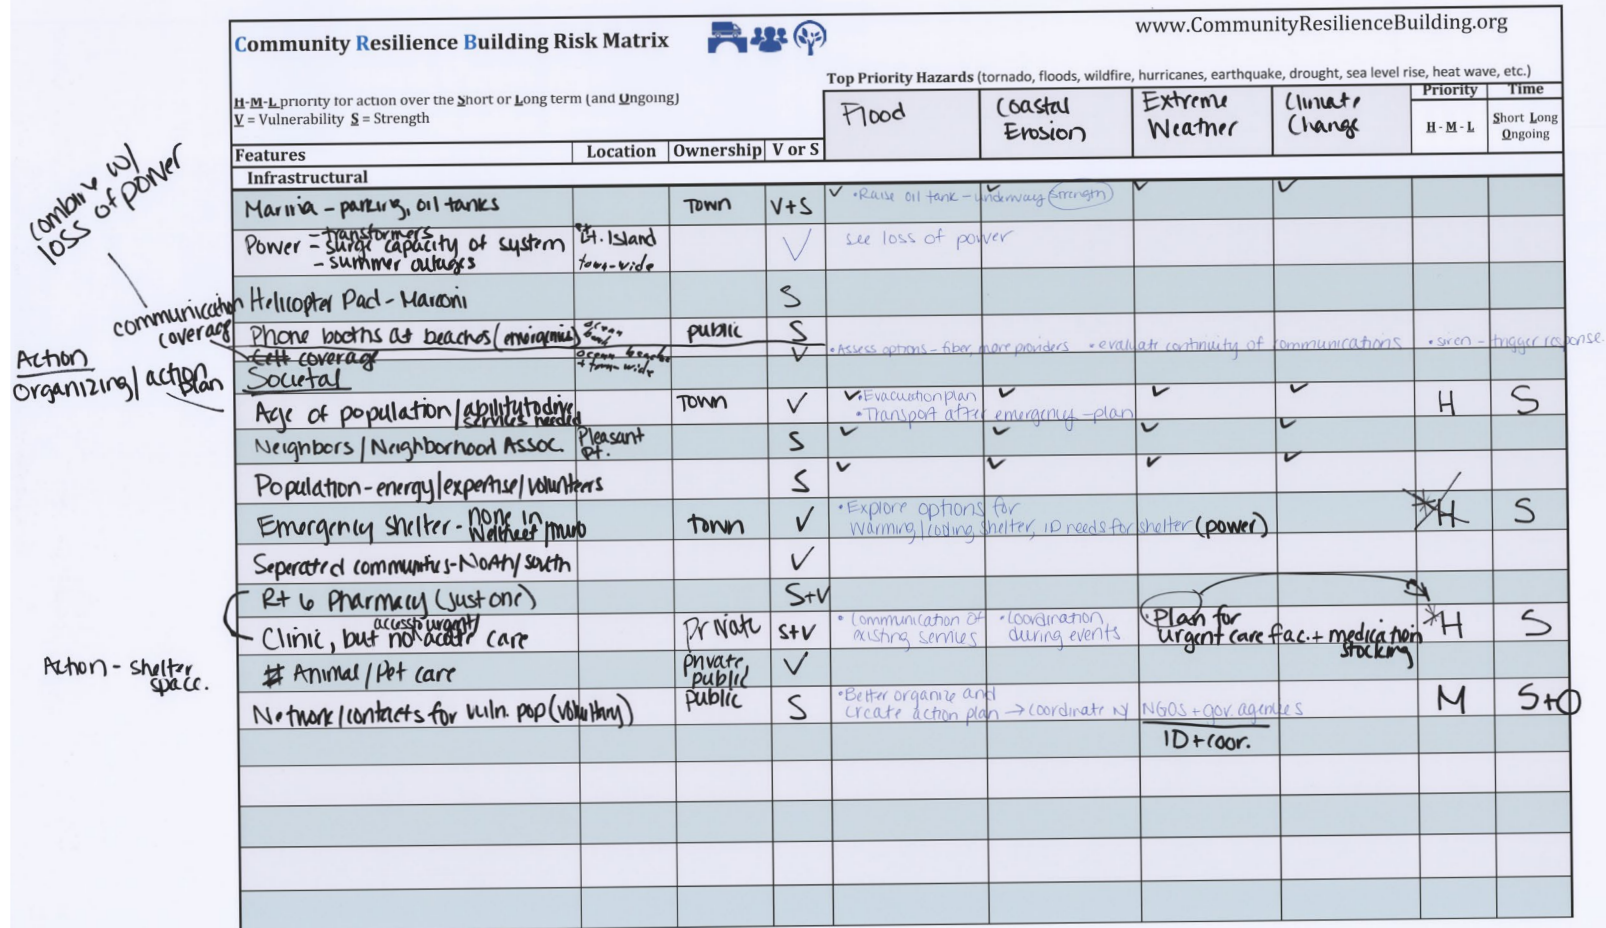 Community Resilience Building Risk Matrix
www.CommunityResilienceBuilding.org
Top Priority Hazards (tornado, floods, wildfire, hurricanes, earthquake, drought, sea level rise, heat wave, etc.)
H-M-L priority for action over the Short or Long term (and Ongoing)
V = Vulnerability S = Strength
Flood
Coastal Erosion
Extreme Weather
Climate Change
Priority
H - M - L
Time
Short Long
Ongoing
Features Location Ownership V or S
Infrastructural
combine w/
loss of power
Marina - parking, oil tanks Town V+S ✓ •Raise oil tank - underway strength ✓ ✓ ✓
Power - transformers
- surge capacity of system
- summer outages
Lt. Island
town-wide
V
see loss of power
Helicopter Pad - Marconi S
communication
coverage
Phone booths at beaches (emergencies) public S
coverage
ocean beaches
+ town-wide
V
•Assess options - fiber, more providers •evaluate continuity of communications •siren - trigger response
Societal
Action
Organizing/action
plan
Age of population/ability to drive
services needed
Town V ✓ •Evacuation plan ✓ ✓ ✓ H S
•Transport after emergency - plan
Neighbors/Neighborhood Assoc. Pleasant
Pt.
S ✓ ✓ ✓ ✓
Population - energy/expertise/volunteers S ✓ ✓ ✓ ✓
Emergency shelter - none in
town V
•Explore options for
warming/cooling shelter, ID needs for shelter (power)
*H S
Seperated communities - North/south V
Rt 6 Pharmacy (just one) S+V
Clinic, but not acute care
access urgent/
Private S+V
•Communication of
existing services
•Coordination
during events
•Plan for
urgent care fac. + medication
stocking
*H S
Action - shelter
space.
# Animal/Pet care private
public
V
Network/contacts for vuln. pop (voluntary) public S
•Better organize and
create action plan → coordinate w/ NGOS + gov. agencies
ID + coor.
M S+O